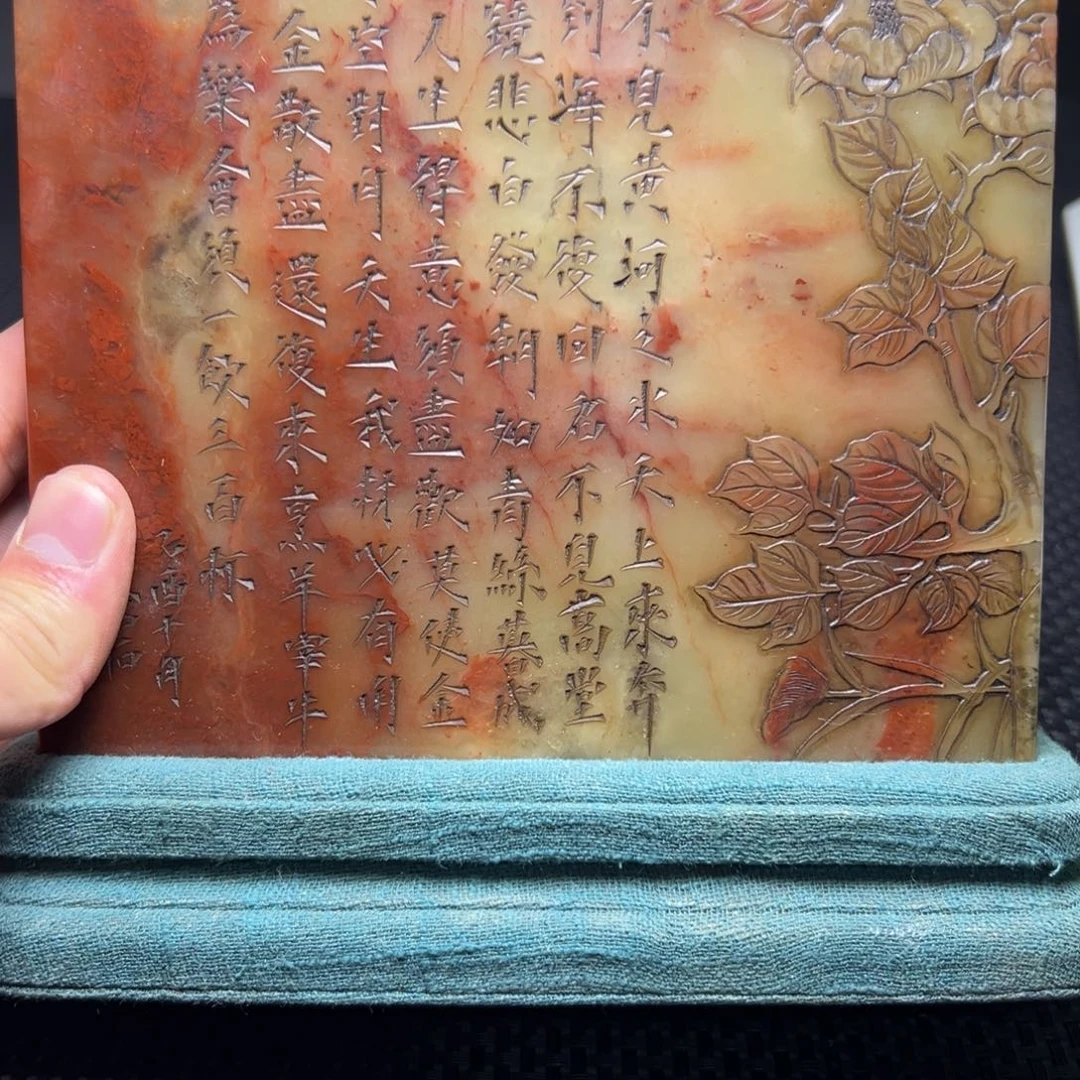 不見黃河之水天上來奔
到海不復回君不見高堂
鏡悲白發朝如青絲暮成
人生得意須盡歡莫使金
空對月天生我材必有用
金散盡還復來烹羊宰牛
為樂會須一飲三百杯
乙酉十月